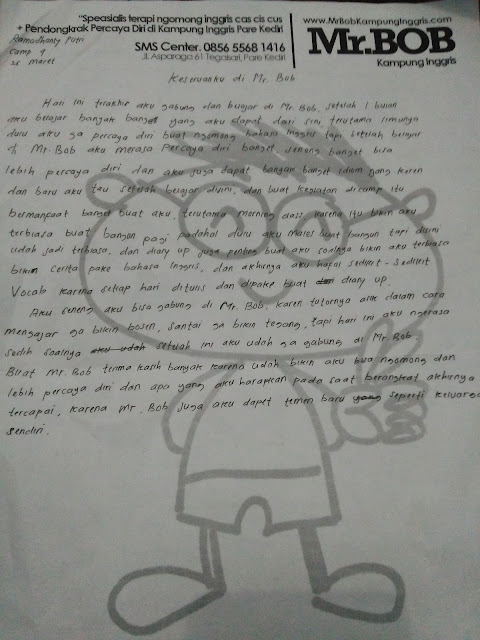 "Speasialis terapi ngomong inggris cas cis cus
+ Pendongkrak Percaya Diri di Kampung Inggris Pare Kediri
SMS Center. 0856 5568 1416
Jl. Asparaga 61 Tegalsari, Pare Kediri
www.MrBobKampungInggris.com
Mr.BOB
Kampung Inggris
Ramadhanty Putri
Camp 4
26 maret
Keseruanku di Mr. Bob
Hari ini terakhir aku gabung dan belajar di Mr. Bob, setelah 1 bulan
aku belajar banyak banget yang aku dapat dari sini, terutama ilmunya
dulu aku ga percaya diri buat ngomong bahasa Inggris tapi setelah belajar
di Mr. Bob aku merasa Percaya diri banget. Seneng banget bisa
lebih percaya diri dan aku juga dapat banyan banget idiom yang keren
dan baru aku tau setelah belajar disini, dan buat kegiatan di camp itu
bermanpaat banget buat aku, terutama morning class, karena itu bikin aku
terbiasa buat bangun pagi padahal dulu aku males buat bangun tapi disini
udah jadi terbiasa, dan diary up juga penting buat aku soalnya bikin aku terbiasa
bikin cerita pake bahasa Inggris, dan akhirnya aku hafal sedikit - sedikit
Vocab karena setiap hari ditulis dan dipake buat diary up.
Aku seneng aku bisa gabung di Mr. Bob, karen tutornya asik dalam cara
mengajar ga bikin bosen, santai ga bikin tegang, tapi hari ini aku ngerasa
sedih soalnya aku udah setelah ini aku udah ga gabung di Mr. Bob.
Buat Mr. Bob terima kasih banyak karena udah bikin aku bisa ngomong dan
lebih percaya diri dan apa yang aku harapkan pada saat berangkat akhirnya
tercapai, karena Mr. Bob juga aku dapet temen baru yang seperti keluarga
sendiri.